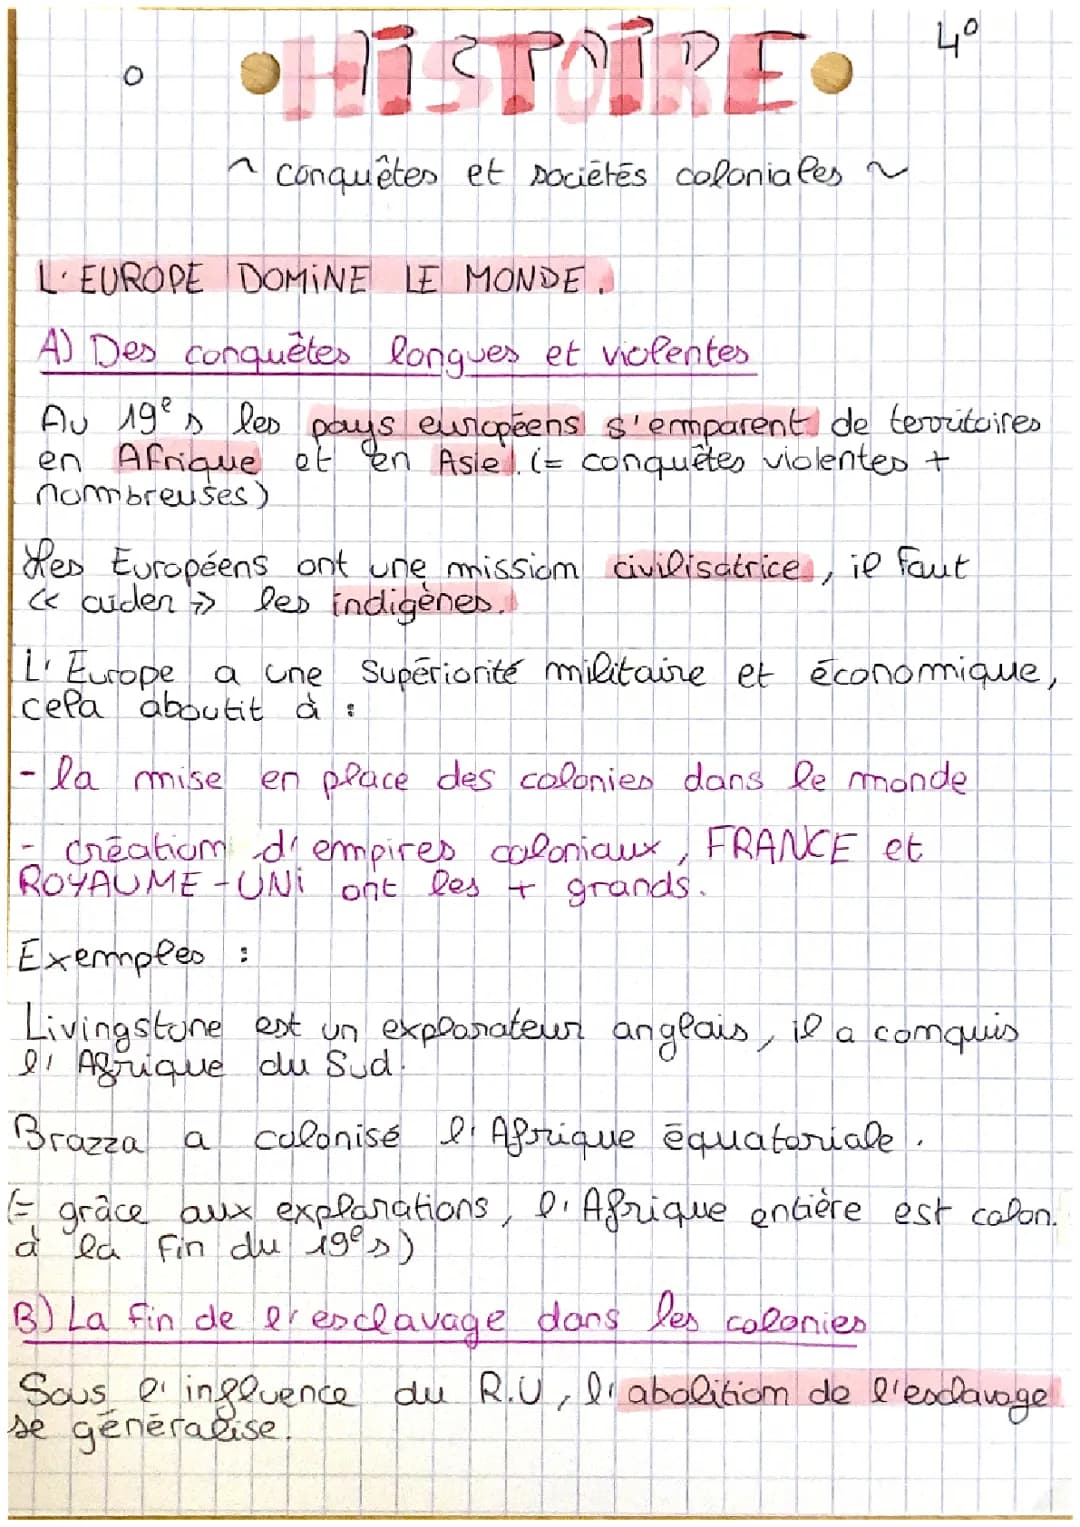 4°
HiSTOiRE
~ conquêtes et sociétés coloniales ~
L'EUROPE DOMiNE LE MONDE.
A) Des conquêtes longues et violentes
Au 19e s les pays européens s'emparent de territoires
en Afrique et en Asie. (= conquêtes violentes +
nombreuses)
Les Européens ont une mission civilisatrice, il faut
« aider » les indigènes.
L'Europe a une supériorité militaire et économique,
cela aboutit à :
- la mise en place des colonies dans le monde
- création d'empires coloniaux, FRANCE et
ROYAUME-UNi ont les + grands.
Exemples :
Livingstone est un explorateur anglais, il a conquis
l'Afrique du Sud.
Brazza a colonisé l'Afrique équatoriale.
(= grâce aux explorations, l'Afrique entière est colon.
à la fin du 19e s)
B) La fin de l'esclavage dans les colonies
Sous l'influence du R.U, l'abolition de l'esclavage
se généralise.